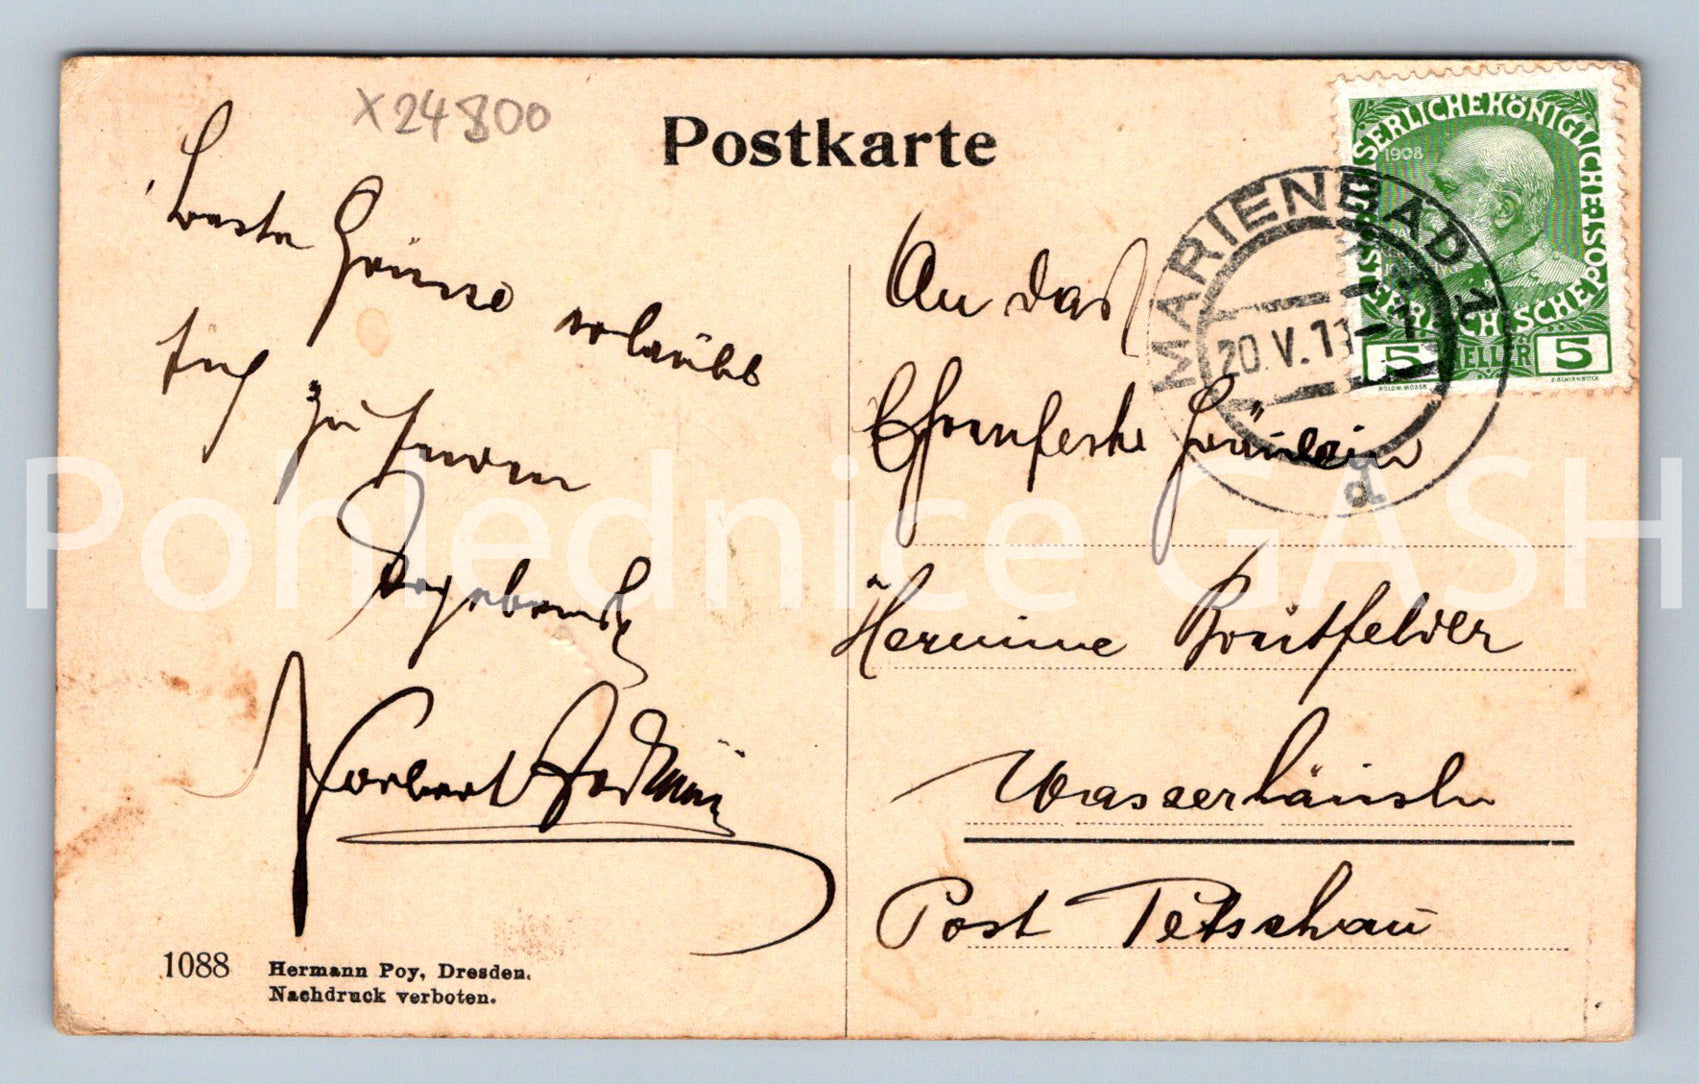 X24800
Postkarte
KAISERLICHE KÖNIGLICHE
1908
ÖSTERREICHISCHE POST
5 HELLER 5
MARIENBAD 1
20.V.11
d
Beste Grüsse erlaubt
sich zu senden
Ergebenst
Norbert
An das
Ehrenfeste Fräulein
Hermine Breitfelder
Wasserhäusln
Post Tetschau
1088
Hermann Poy, Dresden.
Nachdruck verboten.
Pohlednice GASH